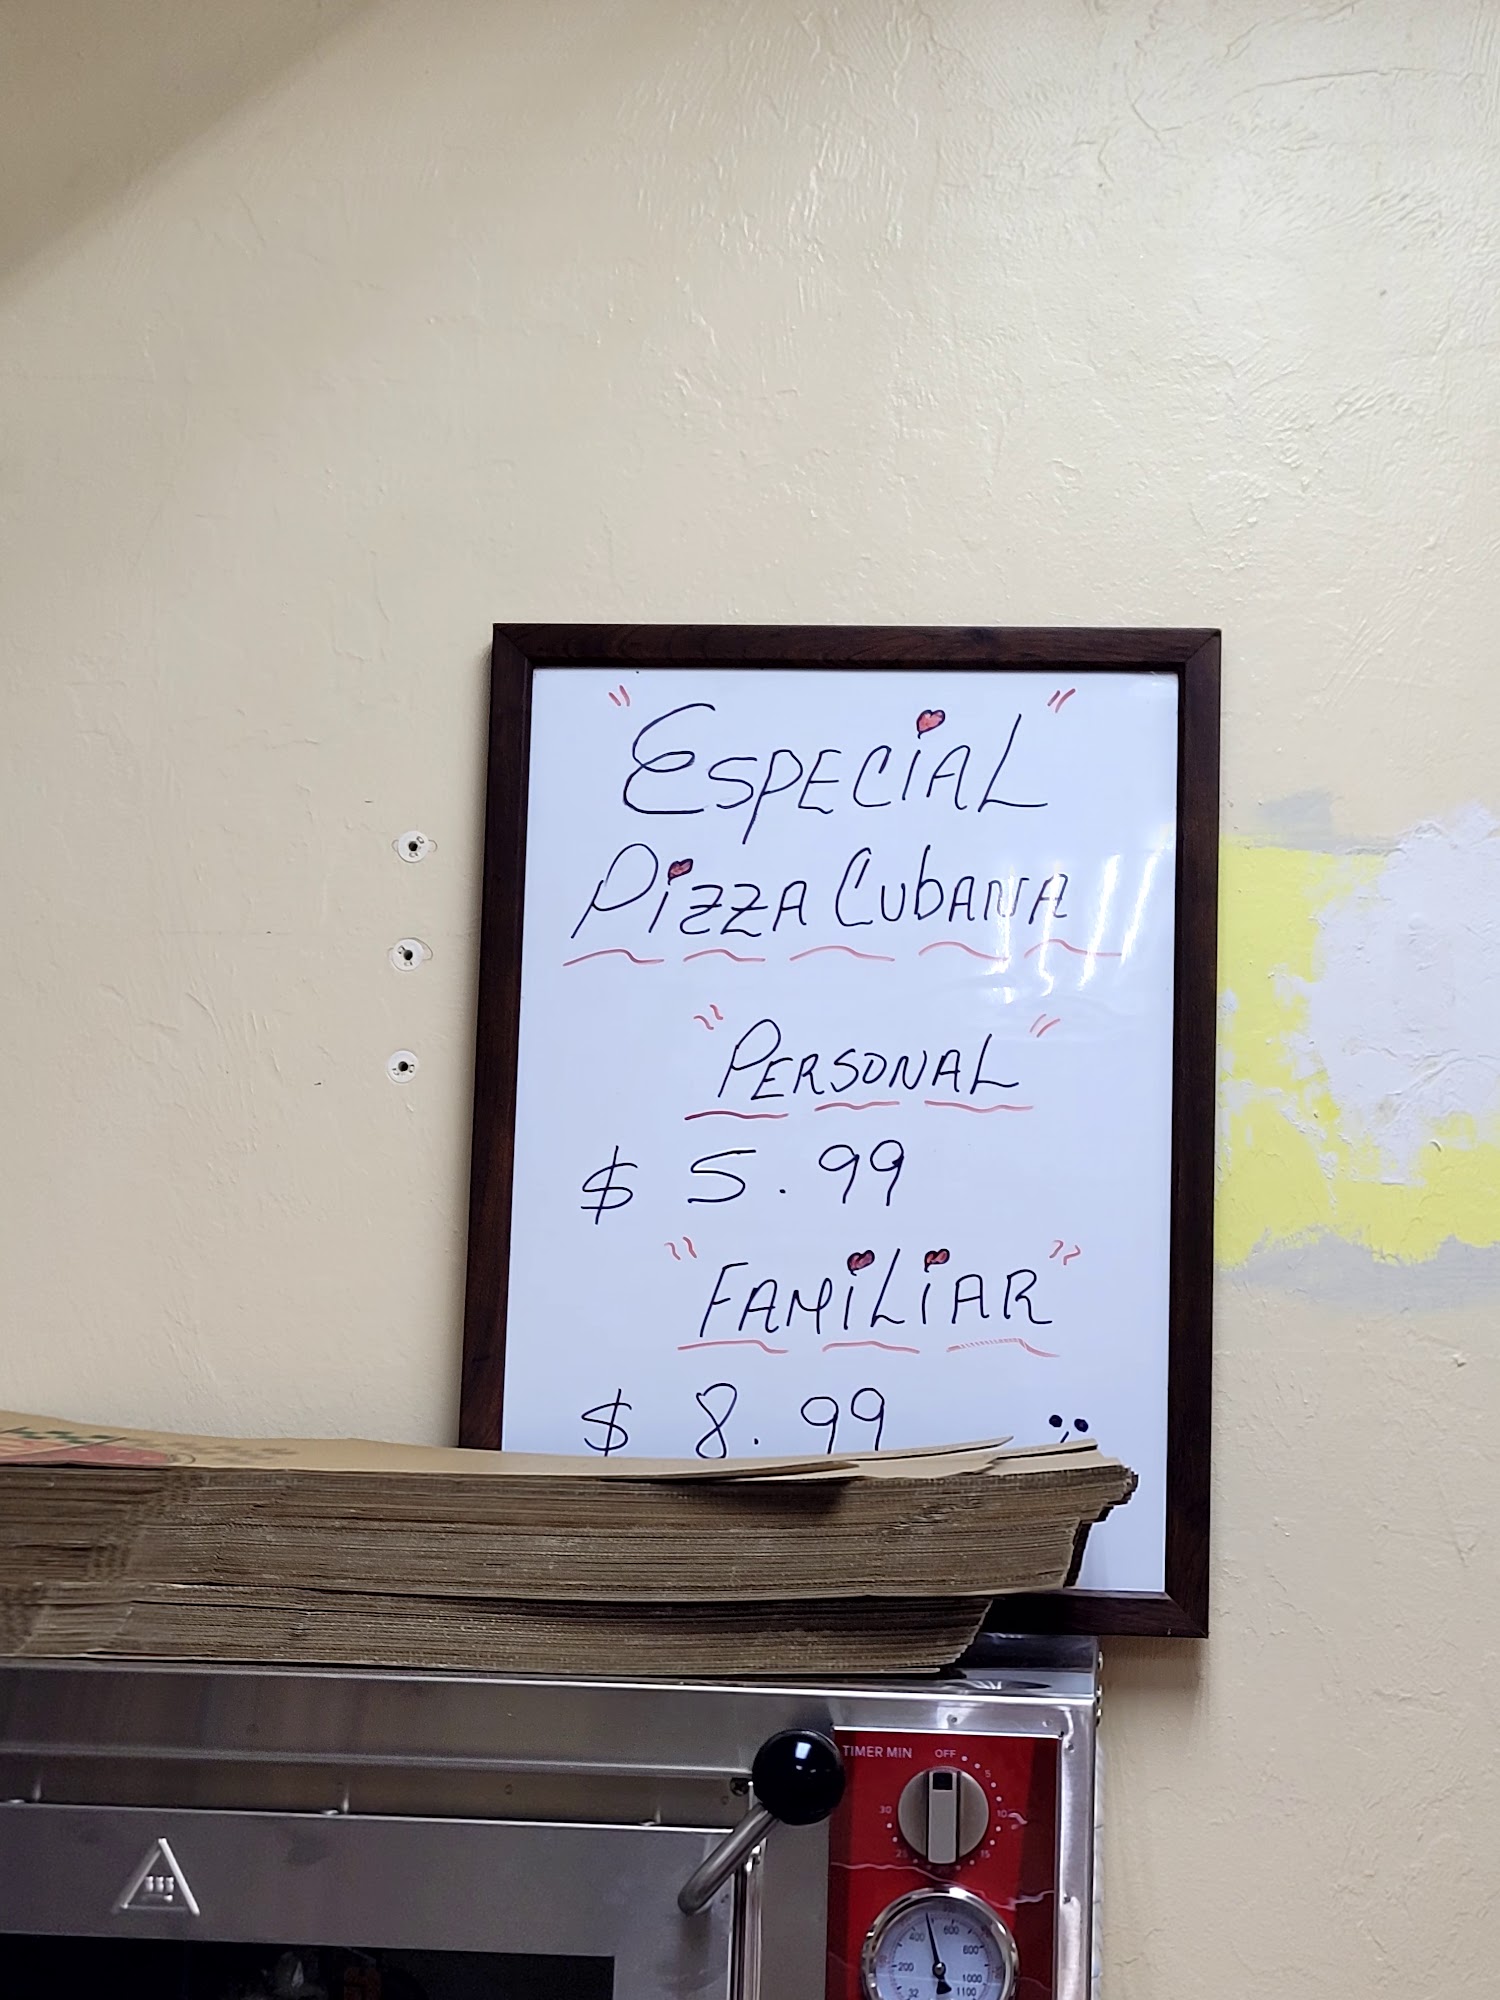 "ESPECiAL"
PiZZA CubANA
"PERSONAL"
$ 5.99
"FAMiLiAR"
$ 8.99
TIMER MIN
OFF
5
10
15
25
30
400
600
200
800
1000
32
1100